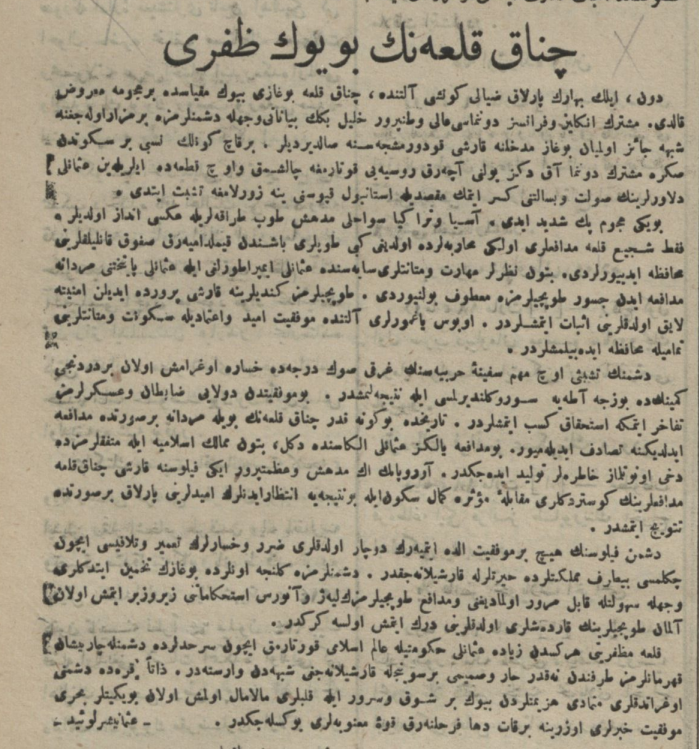 چناق قلعه‌نك بويوك ظفری
دون ، ايلك بهارك پارلاق ضيالی كونشی آلتنده ، چناق قلعه بوغازی بيوك مقياسده برهجومه معروض
قالدی. مشترك انكليز وفرانسز دونماسی عالی وطنپرور خليل بكك بياناتی وجهله دشمنلرمزه برمزار اوله‌جغنه
شبهه جائز اولميان بوغاز مدخلنه قارشی قودورمشجه‌سنه صالديرديلر . برقاچ كونلك نسبی بر سكوندن
صكره مشترك دونما آق دكز يولنی آچه‌رق روسيه‌يی قورتارمغه چالشمق واوچ قطعه‌ده ايلريله‌ين عثمانلی
دلاورلرينك صولت وبسالتنی كسر ايتمك مقصديله استانبول قپوسنی ينه زورلامغه تشبث ايتدی .
بويكی هجوم پك شديد ايدی . آسيا وتراكيا سواحلی مدهش طوپ طراقه‌لريله عكس انداز اولديلر .
فقط شجيع قلعه مدافعلری اولكی محاربه‌لرده اولدينی كبی طوپلری باشندن قيملدامیه‌رق صفوق قانليلقلرينی
محافظه ايدييورلردی. بتون نظرلر مهارت ومتانتلری سايه‌سنده عثمانلی ايمپراطورلغنی ايله عثمانلی پايتختنی مردانه
مدافعه ايدن جسور طوپچيلرمزه معطوف بولنيوردی . طوپچيلرمز كنديلرينه قارشی پرورده ايديلن امنيته
لايق اولدقلرينی اثبات ايتمشلردر . اوبوس ياغمورلری آلتنده موفقيت اميد واعتماديله سكونت ومتانتلرينی
تماميله محافظه ايده‌بيلمشلردر .
دشمنك تشبثی اوچ مهم سفينهٔ حربيه‌سنك غرقی صوك درجه‌ده خساره اوغرامش اولان بردردنجی
كمينكده بوزجه آطه‌يه سوروكلنديرلمسی ايله نتيجه‌لنمشدر . بوموفقيتدن دولايی ضابطان وعسكرلرمز
تفاخر ايتمكه استحقاق كسب ايتمشلردر . تاريخده بوكونه قدر چناق قلعه‌نك بويله مردانه برصورتده مدافعه
ايدلديكنه تصادف ايديله‌ميور. بومدافعه يالكز عثمانلی الكاسنده دكل، بتون ممالك اسلاميه ايله متفقلرمزده
دخی اونوتلماز خاطره‌لر توليد ايده‌جكدر. آوروپانك اك مدهش وعظمتپرور ايكی فيلوسنه قارشی چناق قلعه
مدافعلرينك كوستردكاری مقابلهٔ مؤثره كمال سكون ايله بونتيجه‌يه انتظار ايدنلرك اميدلرينی پارلاق برصورتده
تتويج ايتمشدر .
دشمن فيلوسنك هيچ برموفقيت الده ايتميه‌رك دوچار اولدقلری ضرر وخسارلرك تعمير وتلافيسی ايچون
چكلمسی بيطرف مملكتلرده حيرتلرله قارشيلانه‌جقدر . دشمنلرمزه كلنجه اونلرده بوغازك تخمين ايتدكاری
وجهله سهولتله قابل مرور اولماديغنی ومدافع طوپچيلرمزك ليه‌ژ وآنورس استحكاماتنی زيروزبر ايتمش اولان
آلمان طوپچيلرينك قارده‌شلری اولدقلرينی درك ايتمش اولسه كركدر .
قلعه مظفريتی هركسدن زياده عثمانلی حكومتيله عالم اسلامی قورتارمق ايچون سرحدلرده دشمنله چارپيشان
قهرمانلرمز طرفندن نه‌قدر حار وصميمی برسونجله قارشيلانه‌جنی شبهه‌دن وارسته‌در . ذاتاً قره‌ده دشمنی
اوغراتدقلری متمادی هزيمتلردن بيوك بر شوق وسرور ايله قلبلری مالامال اولمش اولان بويكيتلر بحری
موفقيت خبرلری اوزرينه برقات دها فرحلنه‌رق قوهٔ معنويه‌لری يوكسله‌جكدر . ـ عثمانيشر لوئيد ـ